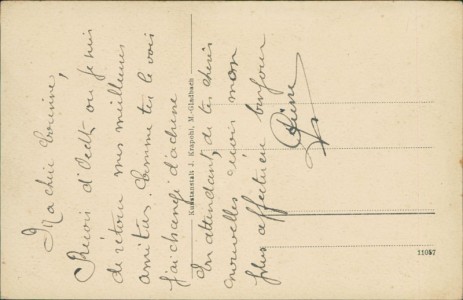 Ma chère Cousine,
Reçois d'Oedt où je suis
de retour mes meilleures
amitiés. Comme tu le vois
j'ai changé d'adresse
En attendant, de tes chères
nouvelles reçois mon
plus affectueux bonjour
Pierre
Kunstanstalt J. Krapohl, M.-Gladbach
11057